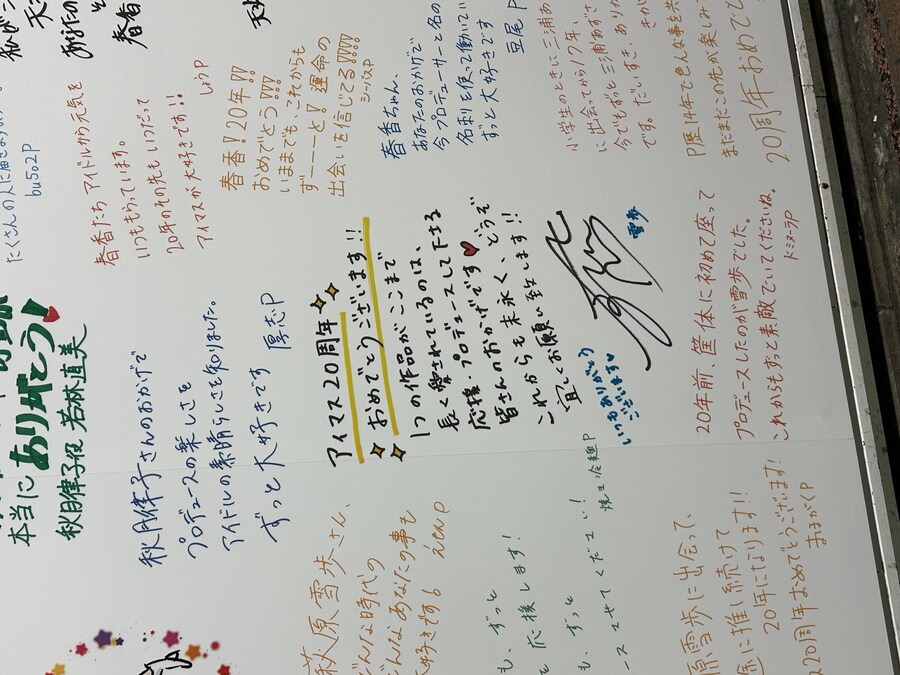 天
春香
たくさんの人に届きますように
bu502P
春香たちアイドルから元気を
いつももらっています。
20年のその先もいつだって
アイマスが大好きです!!
しょうP
春香!20年!!!
おめでとう!!!!
いままでも、これからも
ずーーーと!運命の
出会いを信じる!!!!!
シーバスP
春香ちゃん、
あなたのおかげで
今プロデューサーと名の
名刺を使って働いてい
ずっと大好きです
豆尾P
小学生のときに三浦あ
に出会ってから17年
今でもずっと三浦あずさ
です。だいすき、あり
P歴14年で色んな事を共
まだまだこの先が楽しみ
20周年おめでと
本当にありがとう!
秋月律子役 若林直美
秋月律子さんのおかげで
プロデュースの楽しさを
アイドルの素晴らしさを知りました。
ずっと大好きです 厚志P
アイマス20周年
おめでとうございます!!
1つの作品がここまで
長く愛されているのは、
応援、プロデュースして下さる
皆さんのおかげです♥ どうぞ
これからも末永く、
宜しくお願い致します!!
雪歩
いつもありがとう
ございます♥
20年前、筐体に初めて座って
プロデュースしたのが雪歩でした。
これからもずっと素敵でいてくださいね。
萩原雪歩さん、
どんな時代の
どんなあなたの事も
大好きです
も、ずっと
を応援します!
も、ずっと
ースさせてください!
焼豆冷麺P
原雪歩に出会って、
途に推し続けて
20年になります!!
20周年おめでとうございます!
おはがくP